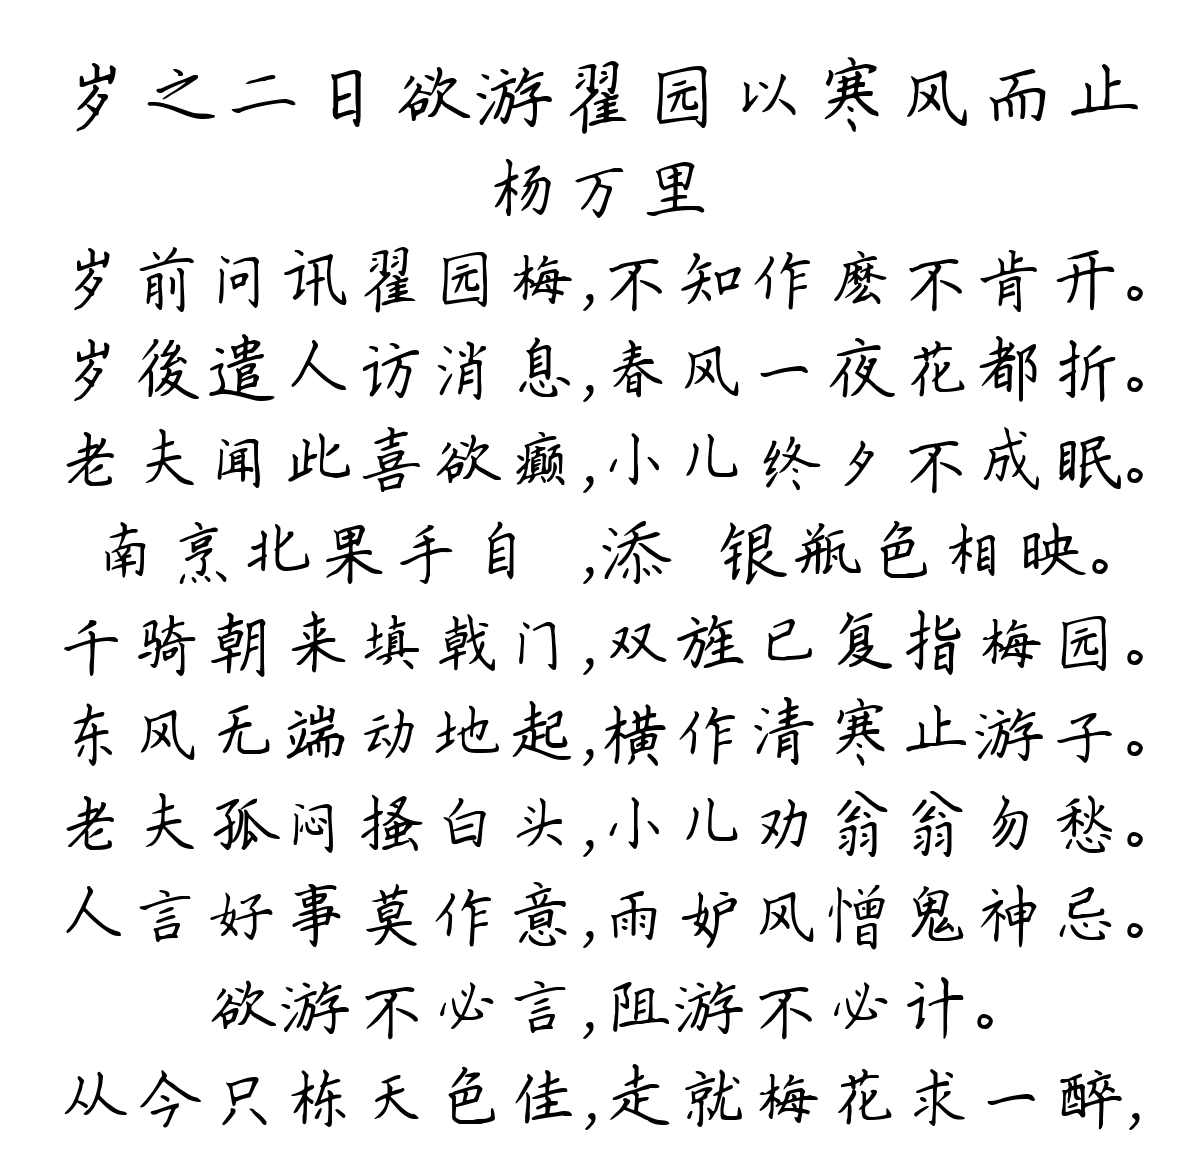 岁之二日欲游翟园以寒风而止
杨万里
岁前问讯翟园梅,不知作麽不肯开。
岁後遣人访消息,春风一夜花都折。
老夫闻此喜欲癫,小儿终夕不成眠。
南烹北果手自 ,添 银瓶色相映。
千骑朝来填戟门,双旌已复指梅园。
东风无端动地起,横作清寒止游子。
老夫孤闷搔白头,小儿劝翁翁勿愁。
人言好事莫作意,雨妒风憎鬼神忌。
欲游不必言,阻游不必计。
从今只栋天色佳,走就梅花求一醉,